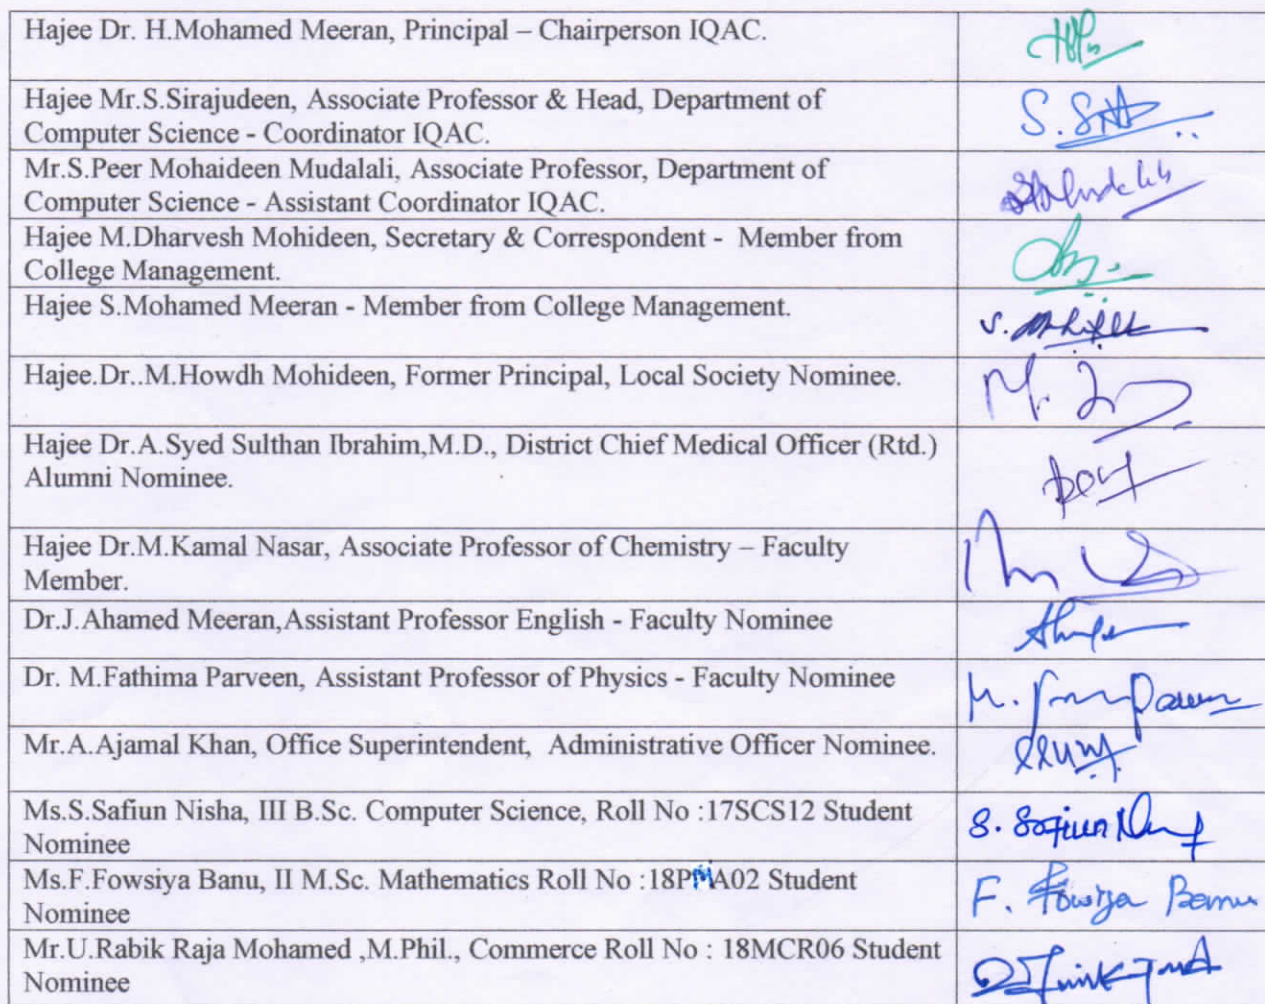 Hajee Dr. H.Mohamed Meeran, Principal – Chairperson IQAC.
Hajee Mr.S.Sirajudeen, Associate Professor & Head, Department of
Computer Science - Coordinator IQAC.
Mr.S.Peer Mohaideen Mudalali, Associate Professor, Department of
Computer Science - Assistant Coordinator IQAC.
Hajee M.Dharvesh Mohideen, Secretary & Correspondent - Member from
College Management.
Hajee S.Mohamed Meeran - Member from College Management.
Hajee.Dr..M.Howdh Mohideen, Former Principal, Local Society Nominee.
Hajee Dr.A.Syed Sulthan Ibrahim,M.D., District Chief Medical Officer (Rtd.)
Alumni Nominee.
Hajee Dr.M.Kamal Nasar, Associate Professor of Chemistry – Faculty
Member.
Dr.J.Ahamed Meeran,Assistant Professor English - Faculty Nominee
Dr. M.Fathima Parveen, Assistant Professor of Physics - Faculty Nominee
Mr.A.Ajamal Khan, Office Superintendent, Administrative Officer Nominee.
Ms.S.Safiun Nisha, III B.Sc. Computer Science, Roll No :17SCS12 Student
Nominee
Ms.F.Fowsiya Banu, II M.Sc. Mathematics Roll No :18PMA02 Student
Nominee
F. Fowsiya Banu
Mr.U.Rabik Raja Mohamed ,M.Phil., Commerce Roll No : 18MCR06 Student
Nominee